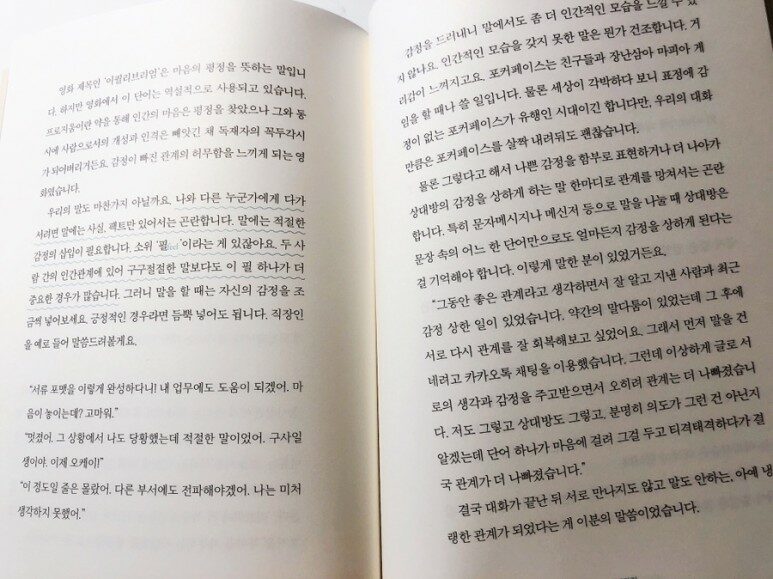 영화 제목인 '이퀼리브리엄'은 마음의 평정을 뜻하는 말입니
다. 하지만 영화에서 이 단어는 역설적으로 사용되고 있습니다.
프로지움이란 약을 통해 인간의 마음은 평정을 찾았으나 그와 동
시에 사람으로서의 개성과 인격은 빼앗긴 채 독재자의 꼭두각시
가 되어버리거든요. 감정이 빠진 관계의 허무함을 느끼게 되는 영
화였습니다.
우리의 말도 마찬가지 아닐까요. 나와 다른 누군가에게 다가
서려면 말에는 사실, 팩트만 있어서는 곤란합니다. 말에는 적절한
감정의 삽입이 필요합니다. 소위 '필feel'이라는 게 있잖아요. 두 사
람 간의 인간관계에 있어 구구절절한 말보다도 이 필 하나가 더
중요한 경우가 많습니다. 그러니 말을 할 때는 자신의 감정을 조
금씩 넣어보세요. 긍정적인 경우라면 듬뿍 넣어도 됩니다. 직장인
을 예로 들어 말씀드려볼게요.
"서류 포맷을 이렇게 완성하다니! 내 업무에도 도움이 되겠어. 마
음이 놓이는데? 고마워."
"멋졌어. 그 상황에서 나도 당황했는데 적절한 말이었어. 구사일
생이야. 이제 오케이!"
"이 정도일 줄은 몰랐어. 다른 부서에도 전파해야겠어. 나는 미처
생각하지 못했어."
감정을 드러내니 말에서도 좀 더 인간적인 모습을 느낄 수 있
지 않나요. 인간적인 모습을 갖지 못한 말은 뭔가 건조합니다. 거
리감이 느껴지고요. 포커페이스는 친구들과 장난삼아 마피아 게
임을 할 때나 쓸 일입니다. 물론 세상이 각박하다 보니 표정에 감
정이 없는 포커페이스가 유행인 시대이긴 합니다만, 우리의 대화
만큼은 포커페이스를 살짝 내려둬도 괜찮습니다.
물론 그렇다고 해서 나쁜 감정을 함부로 표현하거나 더 나아가
상대방의 감정을 상하게 하는 말 한마디로 관계를 망쳐서는 곤란
합니다. 특히 문자메시지나 메신저 등으로 말을 나눌 때 상대방은
문장 속의 어느 한 단어만으로도 얼마든지 감정을 상하게 된다는
걸 기억해야 합니다. 이렇게 말한 분이 있었거든요.
"그동안 좋은 관계라고 생각하면서 잘 알고 지낸 사람과 최근
감정 상한 일이 있었습니다. 약간의 말다툼이 있었는데 그 후에
서로 다시 관계를 잘 회복해보고 싶었어요. 그래서 먼저 말을 건
네려고 카카오톡 채팅을 이용했습니다. 그런데 이상하게 글로 서
로의 생각과 감정을 주고받으면서 오히려 관계는 더 나빠졌습니
다. 저도 그렇고 상대방도 그렇고, 분명히 의도가 그런 건 아닌지
알겠는데 단어 하나가 마음에 걸려 그걸 두고 티격태격하다가 결
국 관계가 더 나빠졌습니다."
결국 대화가 끝난 뒤 서로 만나지도 않고 말도 안하는, 아예 냉
랭한 관계가 되었다는 게 이분의 말씀이었습니다.